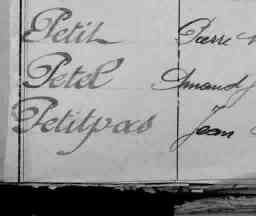 Petit Pierre
Petel Amand
Petitpas Jean